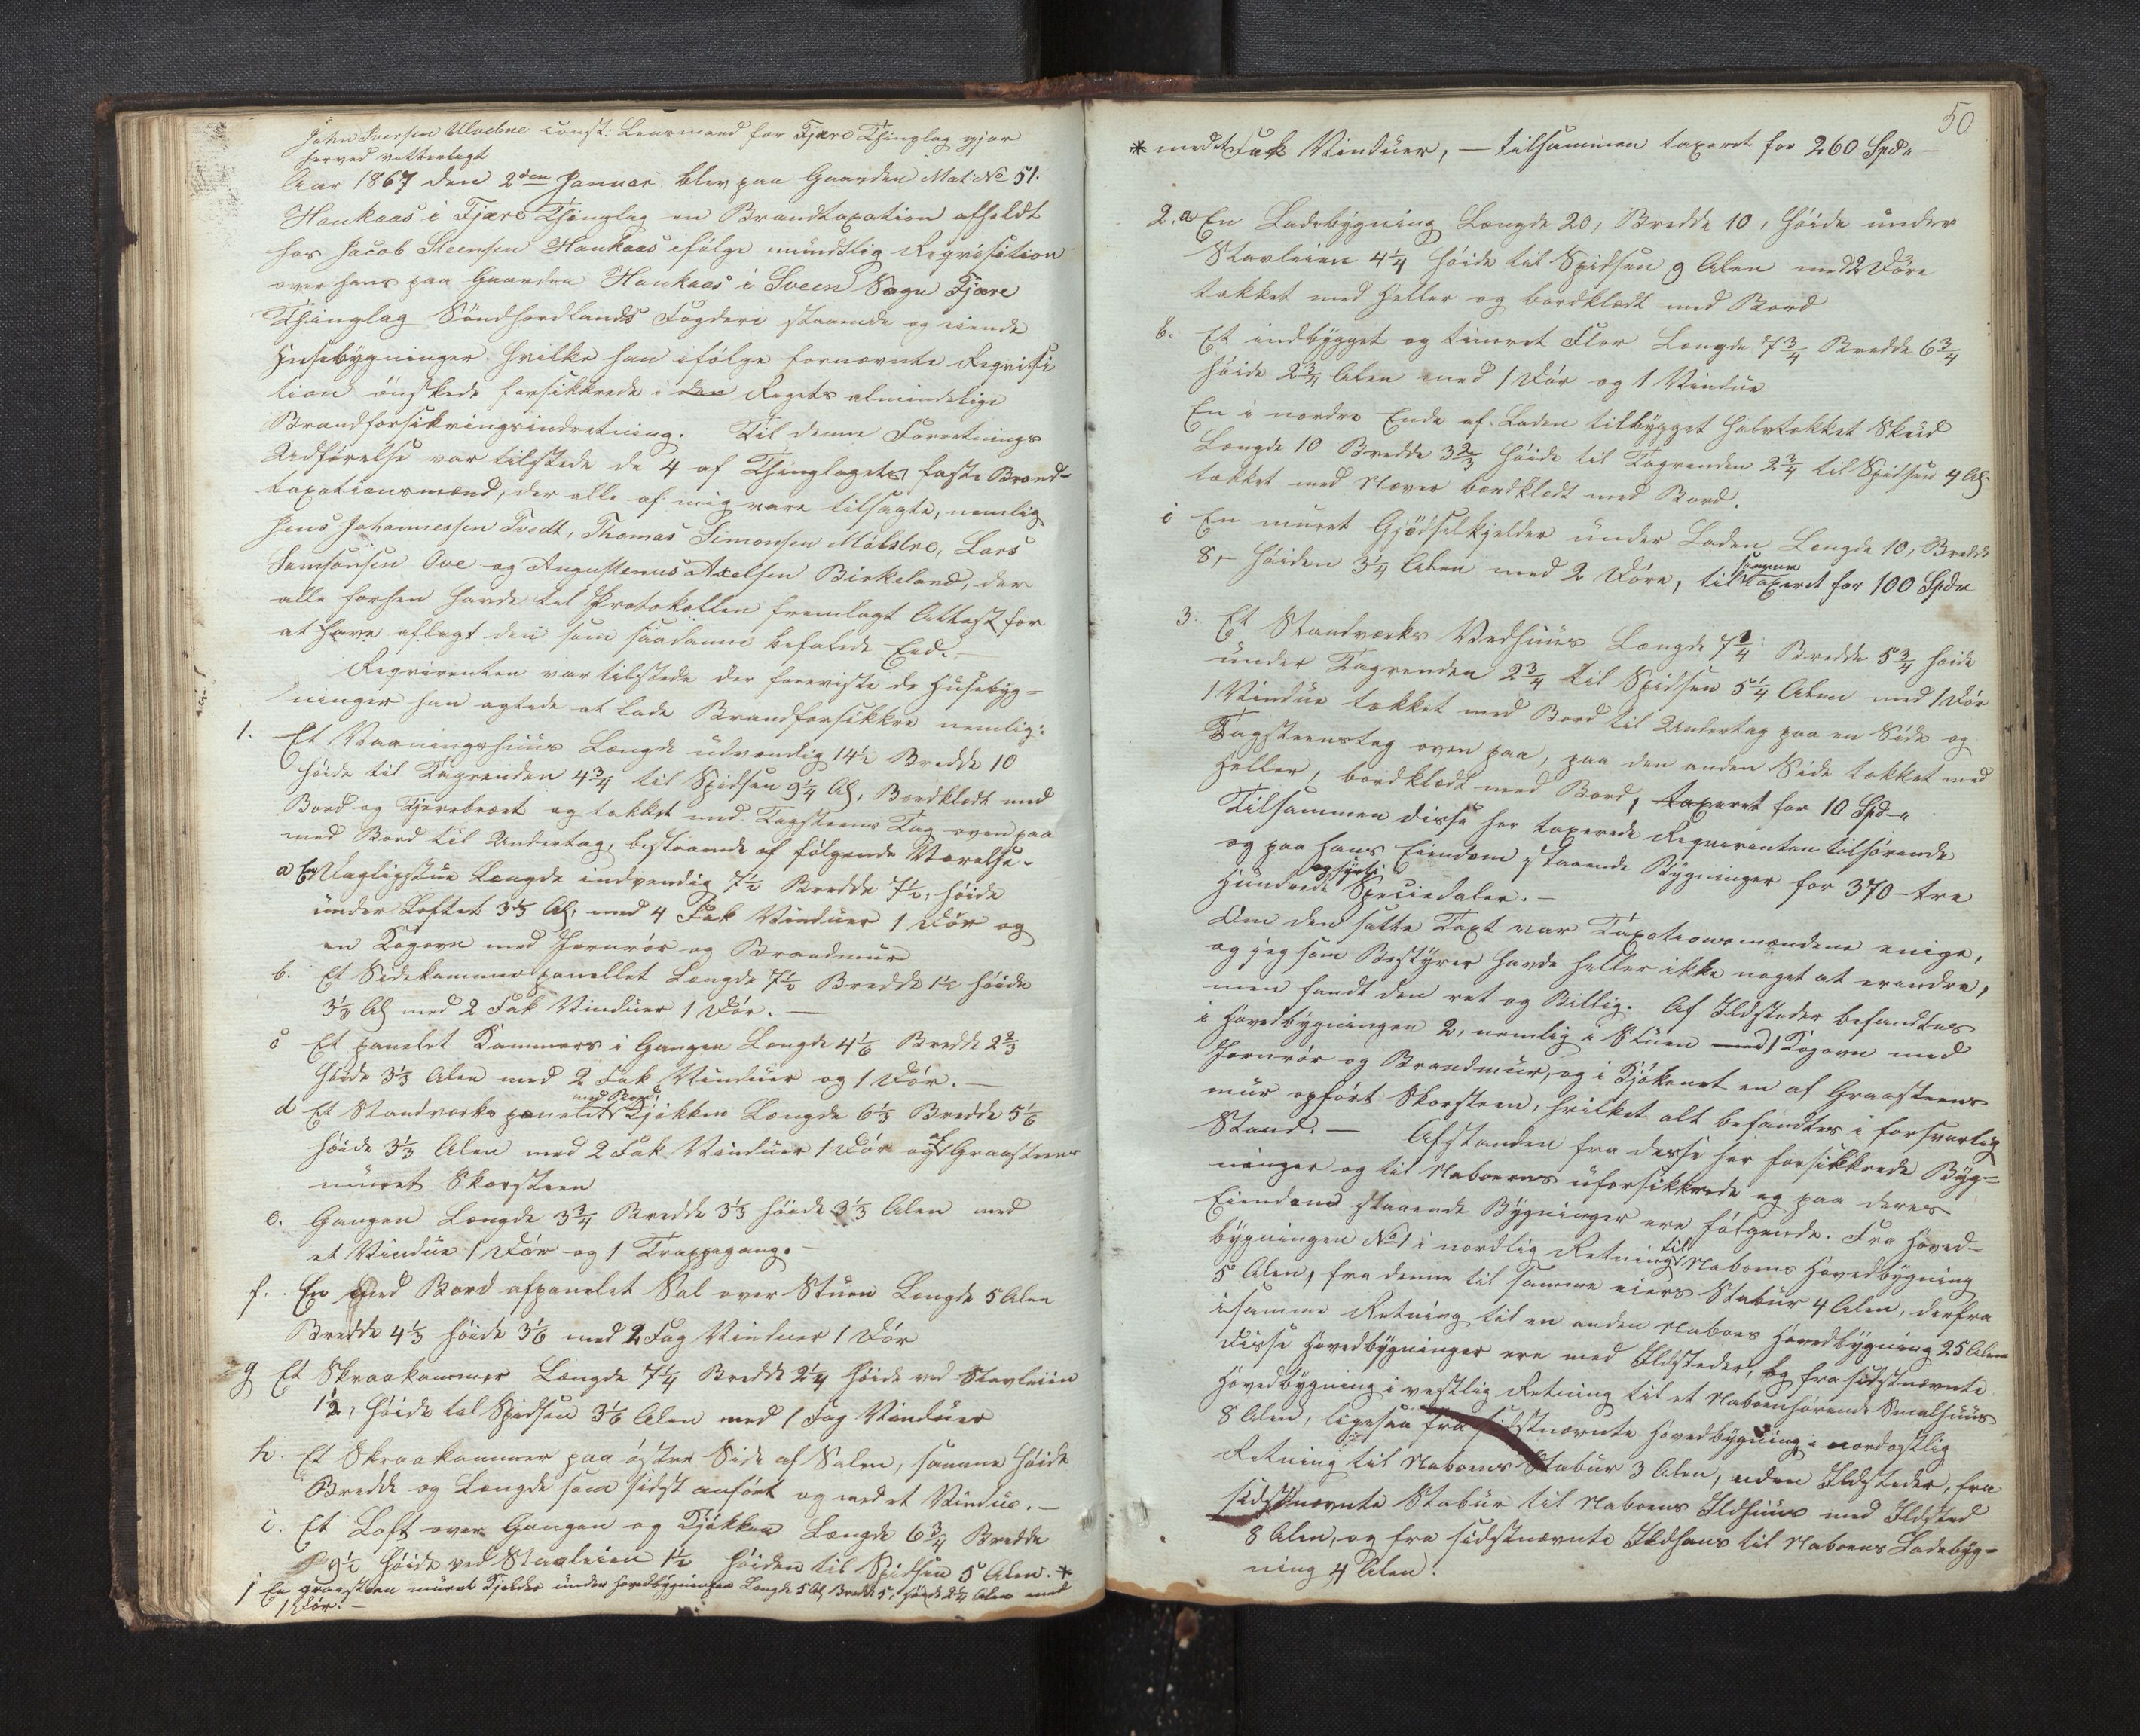 John Iversen Ulvebne const: Lensmand for Fjære Thinglag gjør
herved vitterlagt
Aar 1867 den 2den Januar blev paa Gaarden Mat: No 51.
Haukaas i Fjære Thinglag en Brandtaxation afholdt
hos Jacob Steensen Haukaas ifølge mundtlig Reqvisition
over hans paa Gaarden Haukaas i Sveen Sogn Fjære
Thinglag Söndhordlands Fogderi staaende og eiende
Husebygninger hvilke han ifølge fornævnte Reqvisi
tion ønskede forsikkrede i den Rigets almindelige
Brandforsikringsindretning. Til denne Forretnings
Udførelse var tilstede de 4 af Thinglagets faste Brand-
taxationsmænd, der alle af mig vare tilsagte, nemlig
Jens Johannessen Tvedt, Thomas Simonsen Mölstre, Lars
Samsonsen Ove og Augustenus Axelsen Birkeland, der
alle forhen havde til Protokollen fremlagt Attest for
at have aflagt den som saadanne befalede Eed. –
Reqvirenten var tilstede der foreviste de Husebyg-
ninger han agtede at lade Brandforsikkre nemlig:
1. Et Vaaningshuus Længde udvendig 14½ Bredde 10
höide til Tagrenden 4¾ til Spidsen 9¼ Al, Bordklædt med
Bord og Tjærebræet og takket med Tagsteens Tag ovenpaa
med Bord til Undertag, bestaaende af følgende Værelse.
a En Dagligstue Længde indvendig 7½ Bredde 7½, höide
under Loftet 3⅓ Al, med 4 Fak Vinduer 1 Dör og
en Kogovn med Jernrör og Brandmuur
b. Et Sidekammer panellet Længde 7½ Bredde 1½ höide
3⅓ Al med 2 Fak Vinduer 1 Dör. –
c Et panelet Kammers i Gangen Længde 4⅙ Bredde 2⅔
höide 3⅓ Alen med 2 Fak Vinduer og 1 Dör. –
d Et Standværks panelet med Bord Kjökken Længde 6⅓ Bredde 5⅙
höide 3⅓ Alen med 2 Fak Vinduer 1 Dör og af Graasteens
muuret Skorsteen
e. Gangen Længde 3¾ Bredde 3⅓ höide 3⅓ Alen med
et Vindue 1 Dör og 1 Trappegang. –
f. En med Bord afpanelet Sal over Stuen Længde 5 Alen
Bredde 4⅓ höide 3⅙ med 2 Fag Vinduer 1 Dör
g Et Skraakammer Længde 7¼ Bredde 2¼ höide ved Stavleiien
1½, höide til Spidsen 3⅙ Alen med 1 Fag Vinduer
h. Et Skraakammer paa östre Side af Salen, samme höide
Bredde og Længde som sidst anfört og med et Vindue. –
i. Et Loft over Gangen og Kjökken Længde 6¾ Bredde
9½ höide ved Stavleien 1½ höiden til Spidsen 5 Alen. *
j En graasteen muuret Kjelder under Hovedbygningen Længde 5 Al Bredde 5, höide 2¼ Alen med
1 Dör. –
50
* med et Fak Vinduer, – tilsammen taxeret for 260 Spd. –
2. a En Ladebygning Længde 20, Bredde 10, höide under
Stavleien 4¼ höide til Spidsen 9 Alen med 2 Döre
takket med Heller og bordklædt med Bord
b. Et indbygget og timret Flor Længde 7¾ Bredde 6¾
höide 2¾ Alen med 1 Dör og 1 Vindue
En i nordre Ende af Laden tilbygget halvtakket Skuid
Længde 10 Bredde 3⅔ höide til Tagrenden 2¾ til Spidsen 4 Al.
takket med Næver bordklædt med Bord.
c En muret Gjödselkjelder under Laden Længde 10, Bredde
8, höiden 3¼ Alen med 2 Döre, tilsammen Taxeret for 100 Spd.
3. Et Standværks Vedhuus Længde 7¼ Bredde 5¾ höide
under Tagrenden 2¾ til Spidsen 5¼ Alen med 1 Dör
1 Vindue takket med Bord til Undertag paa en Side og
Tagsteenstag oven paa, paa den anden Side takket med
Heller, bordklædt med Bord, taxeret for 10 Spd.
Tilsammen disse her taxerede Reqvirenten tilhörende
og paa hans Eiendom staaende Bygninger for 370 – tre
Hundrede og sytti Speciedaler. –
Om den satte Taxt var Taxationsmændene enige,
og jeg som Bestyrer havde heller ikke noget at erindre,
men fandt den ret og Billig. Af Ildsteder befandtes
i Hovedbygningen 2, nemlig i Stuen med 1 Kogovn med
Jernrör og Brandmuur, og i Kjökenet en af Graasteens
muur opfört Skorsteen, hvilket alt befandtes i forsvarlig
Stand. – Afstanden fra disse her forsikkrede Byg-
ninger og til Naboerens uforsikkrede og paa deres
Eiendom staaende Bygninger ere følgende. Fra Hoved-
bygningen No 1 i nordlig Retning til Naboens Hovedbygning
5 Alen, fra denne til samme eiers Stabuur 4 Alen, derfra
i samme Retning til en anden Naboes Hovedbygning 25 Alen
Disse Hovedbygninger ere med Ildsteder, og fra sidstnævnte
Hovedbygning i vestlig Retning til et Naboen hörende Smalhuus
8 Alen, ligesaa fra sidstnævnte Hovedbygning i nordostlig
Retning til Naboens Stabuur 3 Alen, uden Ildsteder, fra
sidstnævnte Stabur til Naboens Ildhuus med Ildsted
8 Alen, og fra sidstnævnte Ildhuus til Naboens Ladebyg-
ning 4 Alen.